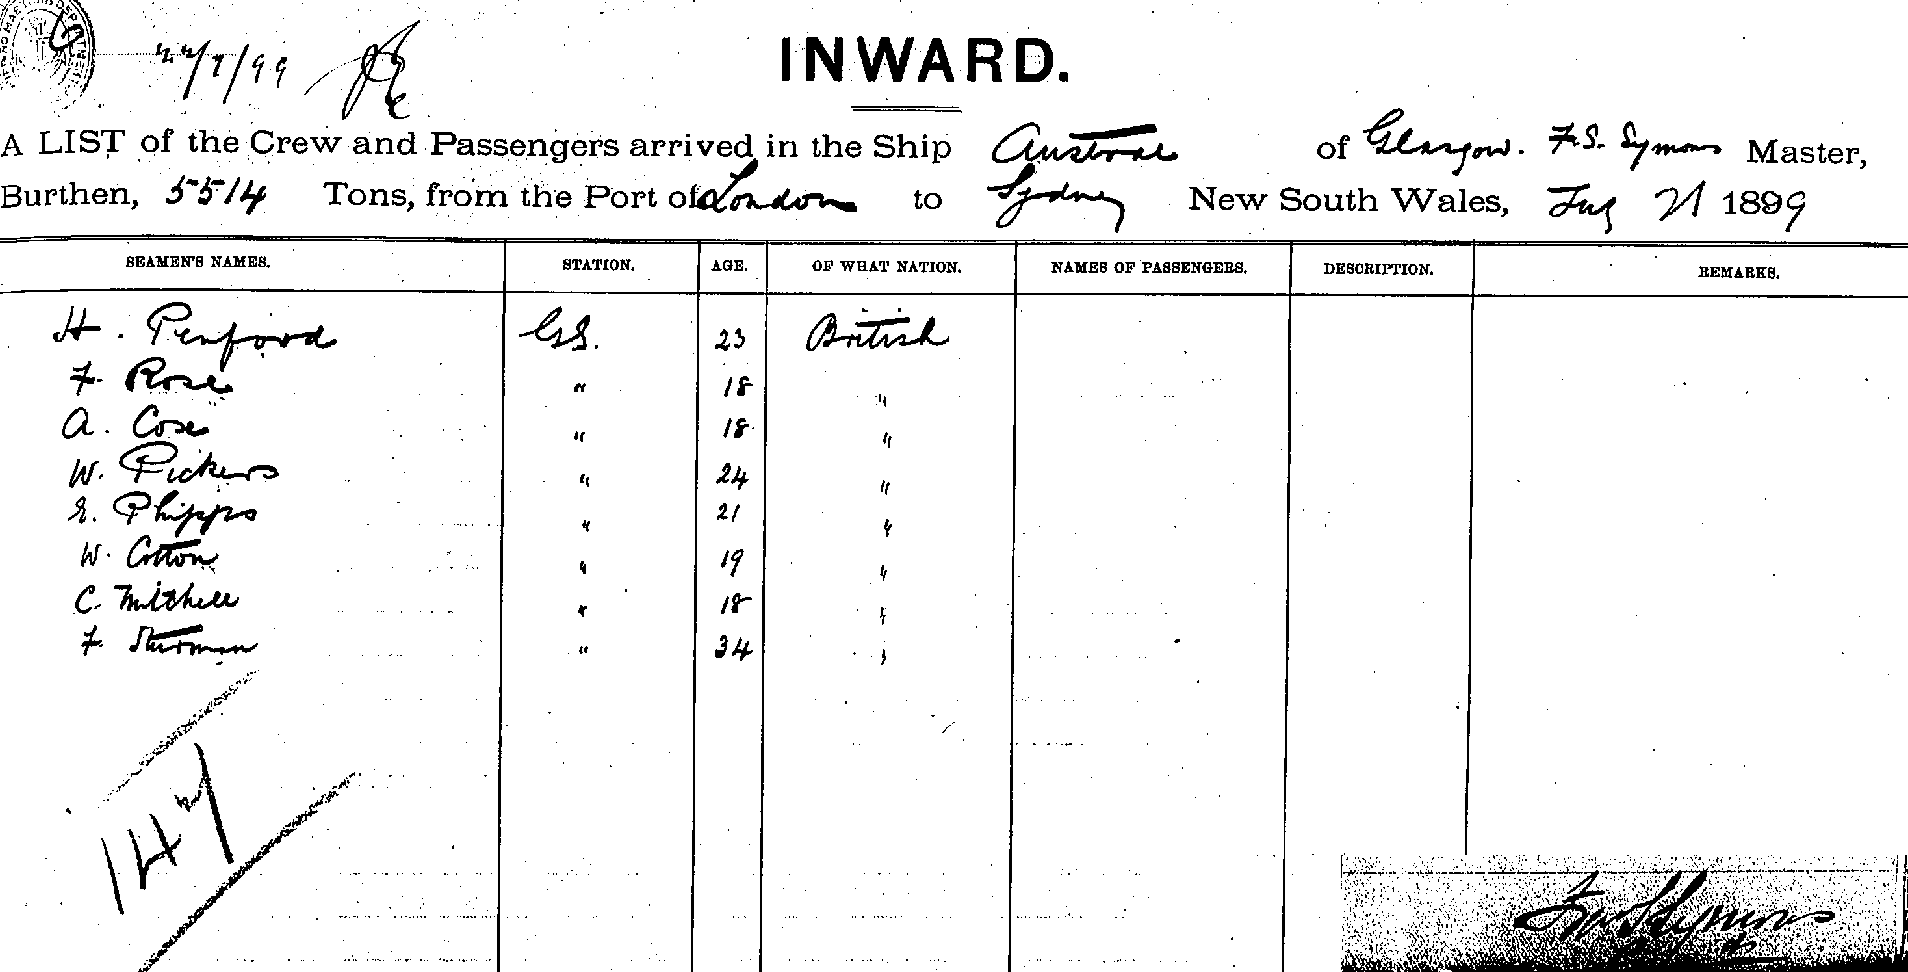 22/7/99
INWARD.
A LIST of the Crew and Passengers arrived in the Ship Austral of Glasgow. F.S. Symons Master,
Burthen, 5514 Tons, from the Port of London to Sydney New South Wales, July 21 1899
SEAMEN'S NAMES. STATION. AGE. OF WHAT NATION. NAMES OF PASSENGERS. DESCRIPTION. REMARKS.
H. Penfoord G.S. 23 British
F. Rose " 18 "
A. Cose " 18 "
W. Pickers " 24 "
E. Phipps " 21 "
W. Cotton " 19 "
C. Mitchell " 18 "
F. Sturman " 34 "
147
Symons